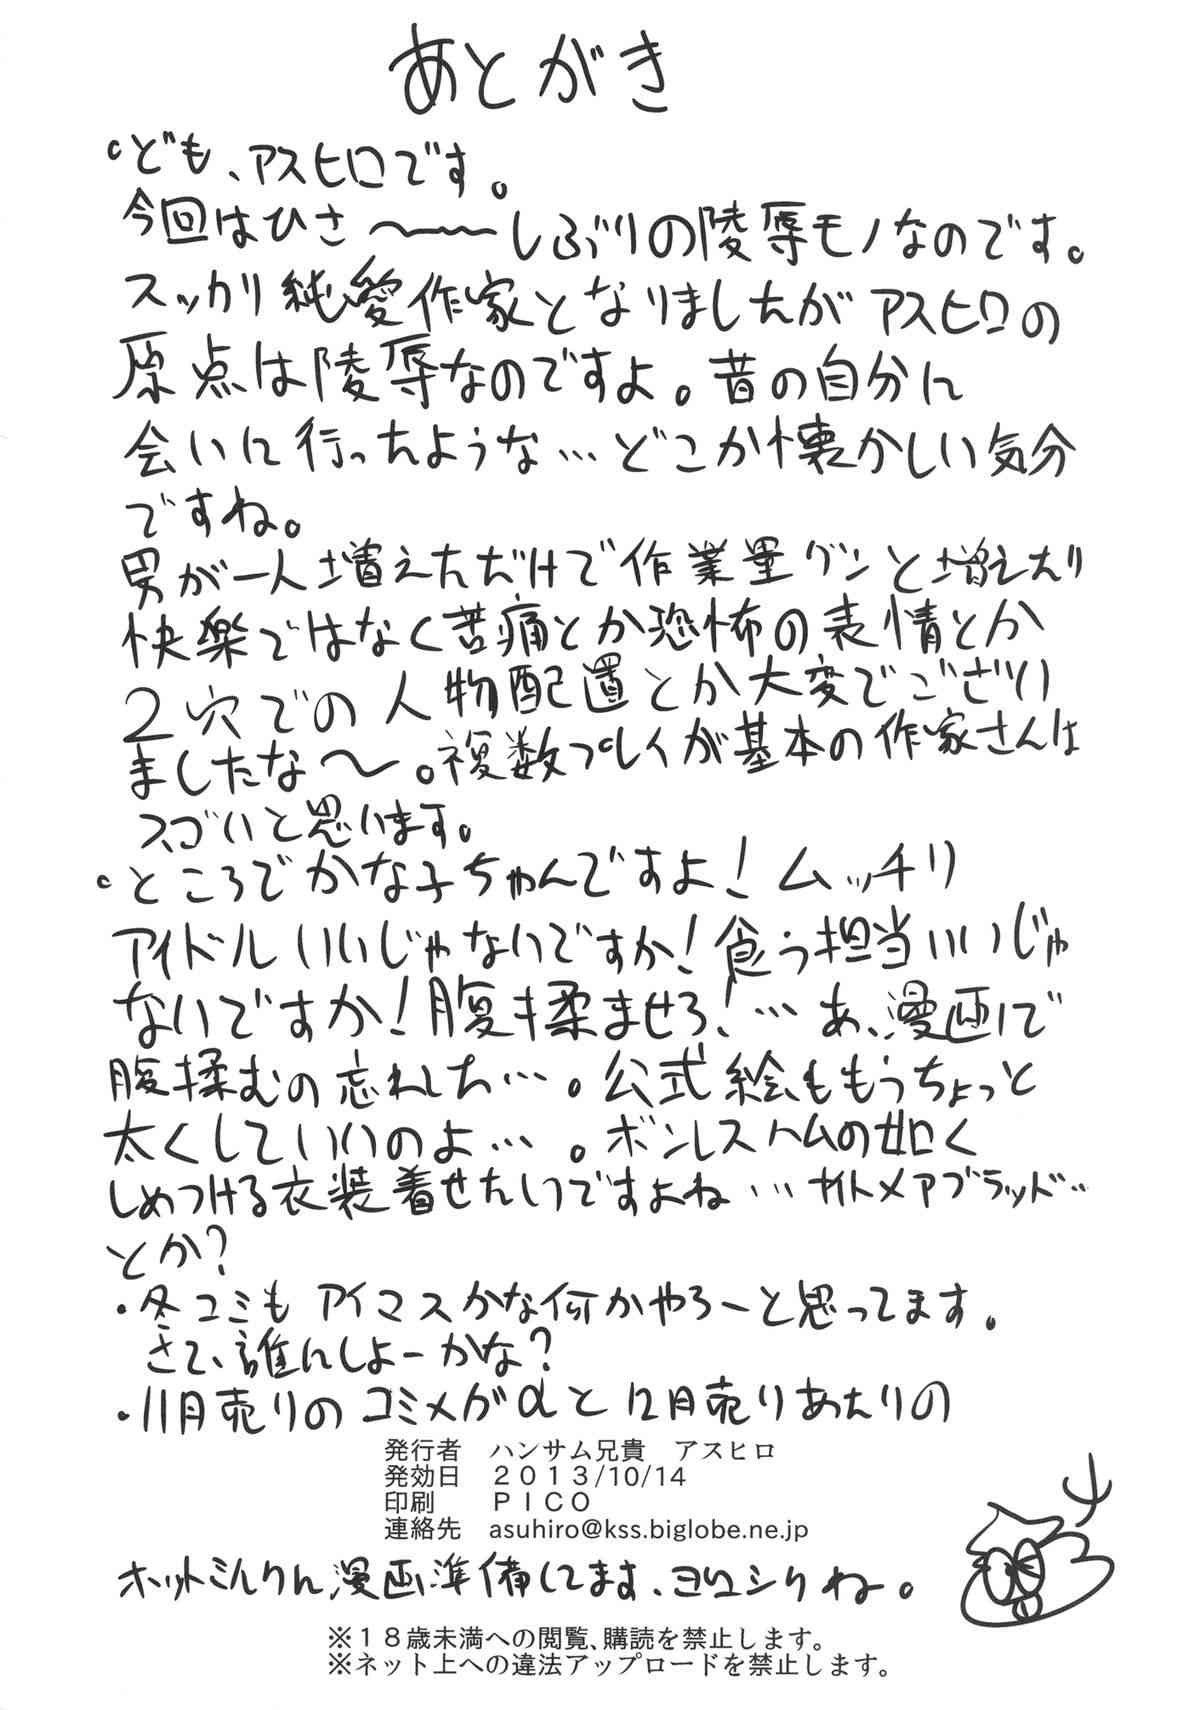 あとがき
・ども、アスヒロです。
今回はひさ〜〜〜しぶりの陵辱モノなのです。
スッカリ純愛作家となりましたがアスヒロの
原点は陵辱なのですよ。昔の自分に
会いに行ったような…どこか懐かしい気分
ですね。
男が一人増えただけで作業量グンと増えたり
快楽ではなく苦痛とか恐怖の表情とか
2穴での人物配置とか大変でござい
ましたな〜。複数プレイが基本の作家さんは
スゴいと思います。
・ところでかな子ちゃんですよ!ムッチリ
アイドルいいじゃないですか!食う担当いいじゃ
ないですか!腹揉ませろ!…あ、漫画で
腹揉むの忘れした…。公式絵ももうちょっと
太くしていいのよ…。ボンレスハムの如く
しめつける衣装着せたいですよね…ナイトメアブラッド…
とか?
・冬コミもアイマスかな何かやろーと思ってます。
さて、誰にしよーかな?
・11月売りのコミメガαと12月売りあたりの
発行者 ハンサム兄貴 アスヒロ
発効日 2013/10/14
印刷 PICO
連絡先 asuhiro@kss.biglobe.ne.jp
ホットミルクに漫画準備してます、ヨロシクね。
※18歳未満への閲覧、購読を禁止します。
※ネット上への違法アップロードを禁止します。